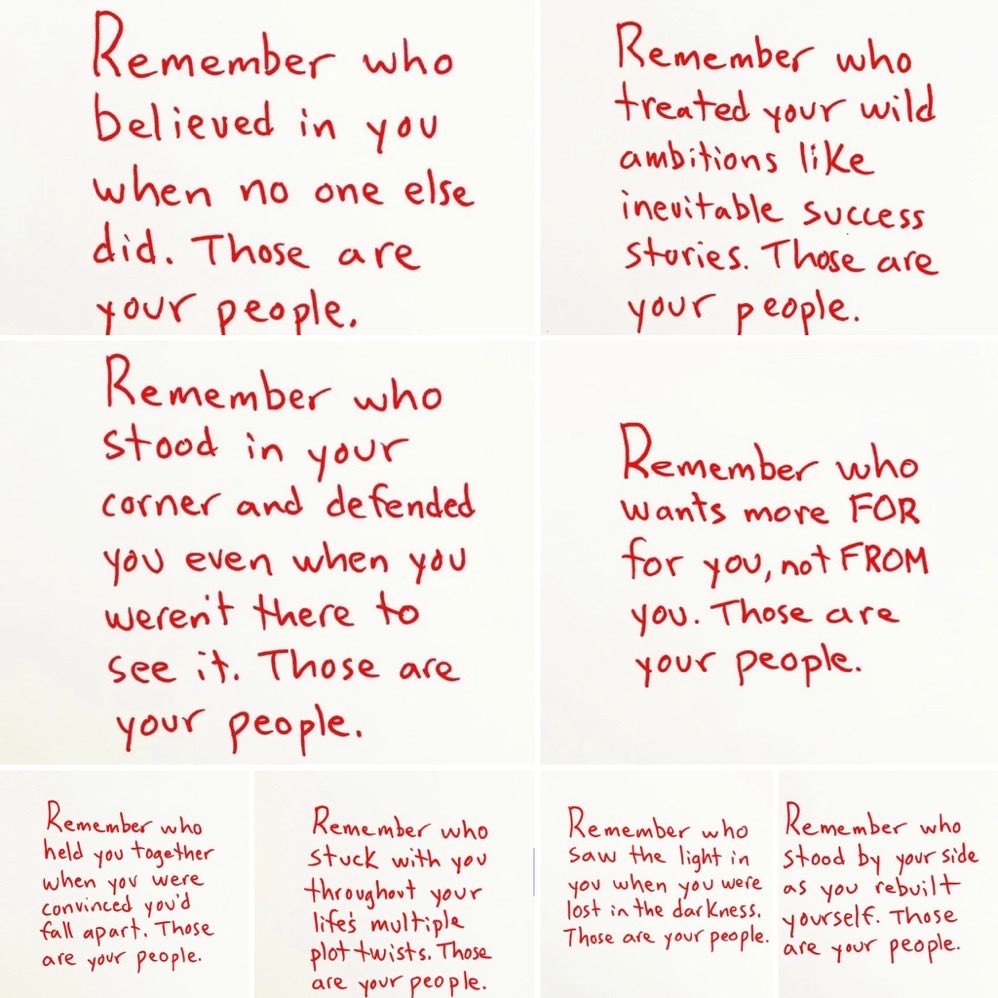 Remember who
believed in you
when no one else
did. Those are
your people.
Remember who
treated your wild
ambitions like
inevitable success
stories. Those are
your people.
Remember who
stood in your
corner and defended
you even when you
weren't there to
see it. Those are
your people.
Remember who
wants more FOR
for you, not FROM
you. Those are
your people.
Remember who
held you together
when you were
convinced you'd
fall apart. Those
are your people.
Remember who
stuck with you
throughout your
life's multiple
plot twists. Those
are your people.
Remember who
saw the light in
you when you were
lost in the darkness.
Those are your people.
Remember who
stood by your side
as you rebuilt
yourself. Those
are your people.